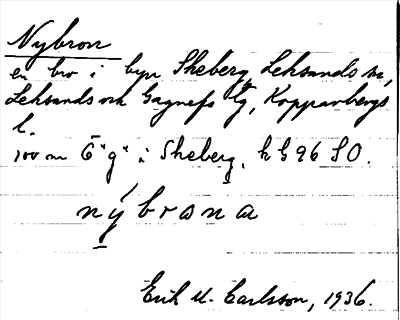 Nybron
en bro i byn Skeberg, Leksands sn,
Leksands och Gagnefs tg, Kopparbergs
l.
100 m Ö "g" i Skeberg, k G 96 SO.
nýbrona
Erik U. Carlsson, 1936.